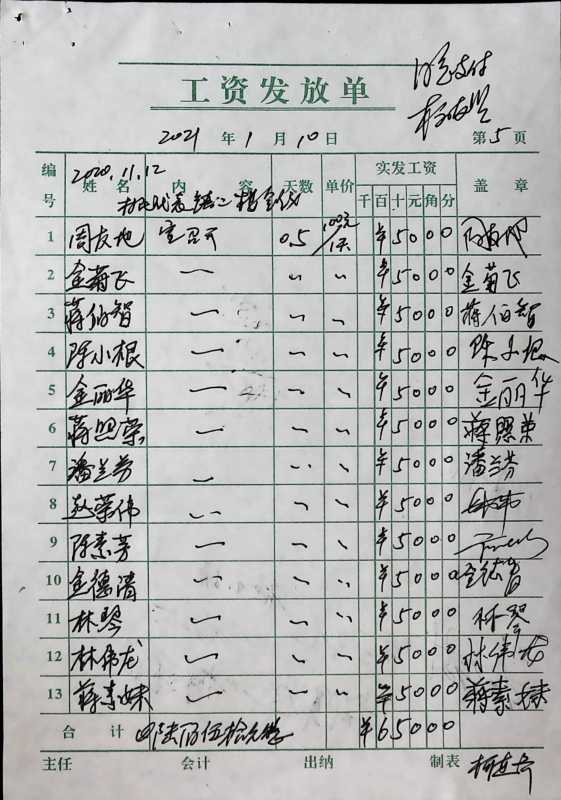 工资发放单
2021 年 1 月 10 日 第 5 页
2020.11.12
编号 姓名 内容 天数 单价 实发工资 千 百 十 元 角 分 盖章
1 周友地 0.5 100元/天 ¥5000 周友地
2 金菊飞 〃 〃 ¥5000 金菊飞
3 蒋伯智 〃 〃 ¥5000 蒋伯智
4 陈小根 〃 〃 ¥5000 陈小根
5 金丽华 〃 〃 ¥5000 金丽华
6 蒋照荣 〃 〃 ¥5000 蒋照荣
7 潘兰芬 〃 〃 ¥5000 潘兰芬
8 赵荣伟 〃 〃 ¥5000
9 陈素芳 〃 〃 ¥5000
10 金德清 〃 〃 ¥5000 金德清
11 林琴 〃 〃 ¥5000 林琴
12 林伟龙 〃 〃 ¥5000 林伟龙
13 蒋素妹 〃 〃 ¥5000 蒋素妹
合计 陆佰伍拾元 ¥65000
主任 会计 出纳 制表